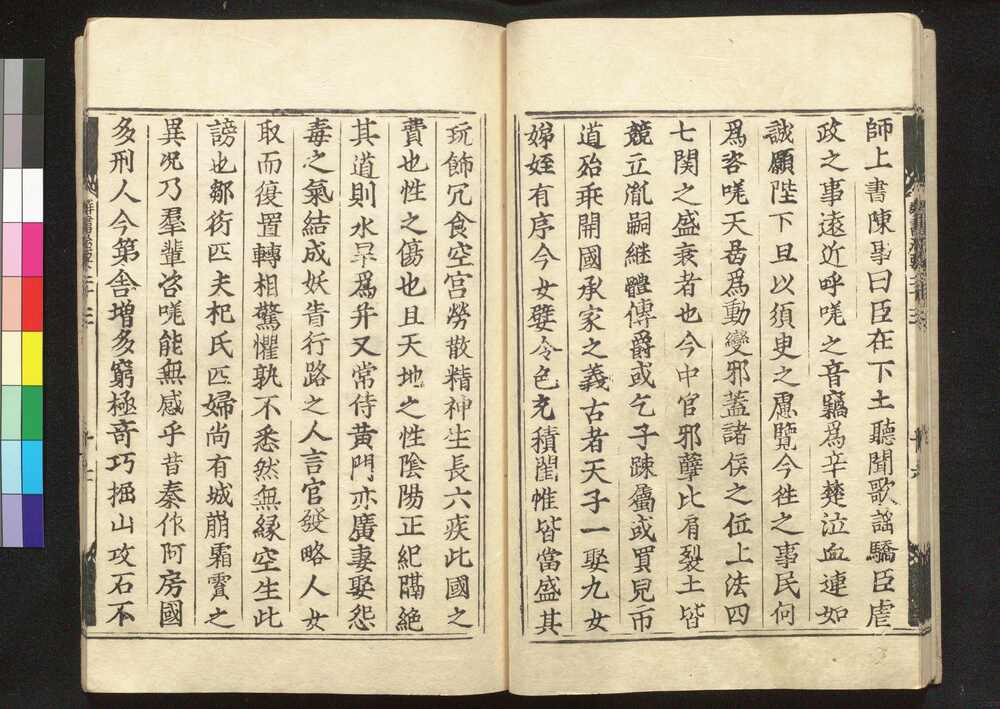 師上書陳事曰臣在下土聽聞歌謡驕臣虐
政之事遠近呼嗟之音竊爲辛楚泣血連如
誠願陛下且以須臾之慮覽今徃之事民何
爲咨嗟天曷爲動變邪蓋諸侯之位上法四
七関之盛衰者也今中官邪孽比肩裂土皆
競立胤嗣継體傳爵或乞子踈屬或買兒市
道殆乖開國承家之義古者天子一娶九女
娣姪有序今女嬖令色充積閨帷皆當盛其
玩飾冗食空宮勞散精神生長六疾此國之
費也性之傷也且天地之性陰陽正紀隔絶
其道則水旱爲并又常侍黄門亦廣妻娶怨
毒之氣結成妖眚行路之人言官發略人女
取而復置轉相驚懼孰不悉然無縁空生此
謗也鄒衍匹夫杞氏匹婦尚有城崩霜霣之
異况乃羣輩咨嗟能無感乎昔秦作阿房國
多刑人今第舎増多窮極竒巧掘山攻石不